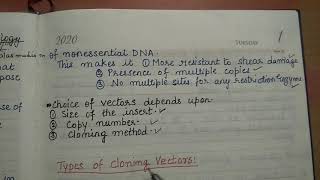 2020
TUESDAY
1
of nonessential DNA.
This makes it ① More resistant to shear damage
② Presence of multiple copies
③ No multiple sites for any restriction enzyme
Choice of vectors depends upon-
① Size of the insert.
② Copy number.
③ Cloning method.
Types of Cloning Vectors:
ology
that
pose
se of